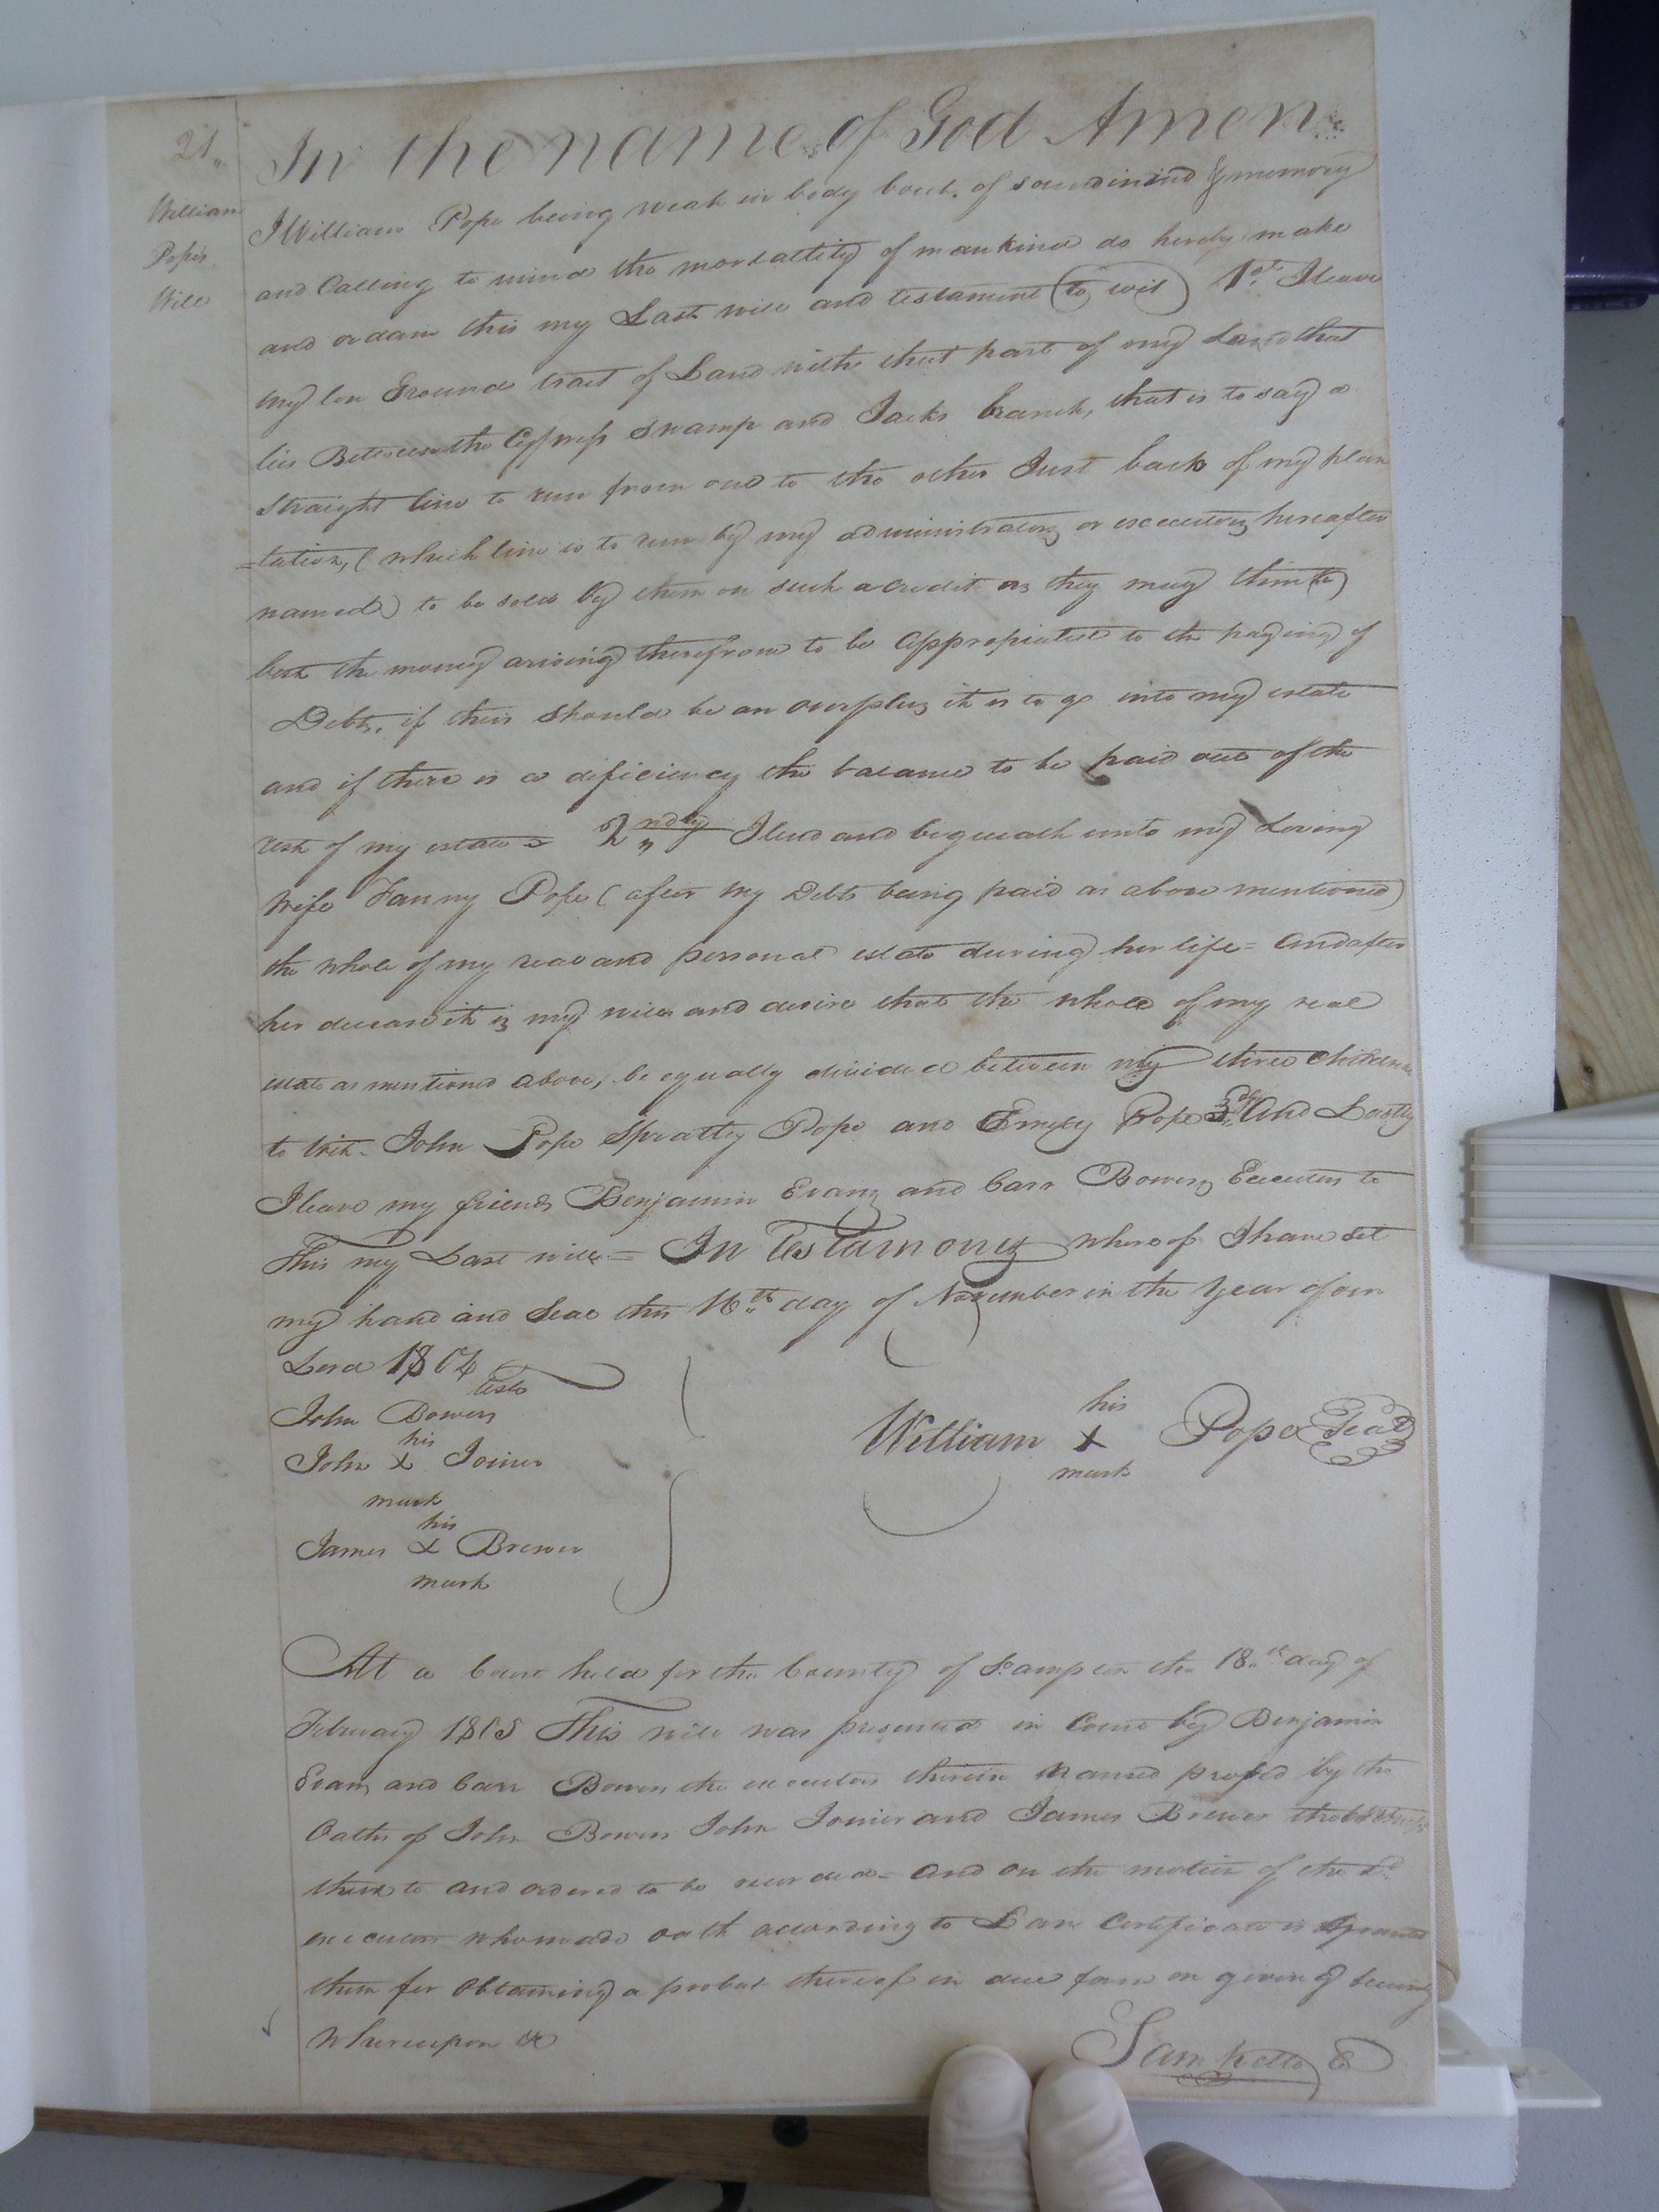 21
William
Pope's
Will
In the name of God Amen
I William Pope being weak in body but of sound mind & memory
and Calling to mind the mortallity of mankind do hereby make
and ordain this my Last will and testament (to wit) 1st I leave
my low Ground tract of Land with that part of my Land that
lies Between the Cypress Swamp and Jacks branch, that is to say a
straight line to run from one to the other Just back of my plan
=tation, (which line is to run by my administrators or executors hereafter
named) to be sold by them on such a credit as they may think
best the money arising therefrom to be appropiated to the paying of
Debts, if their should be an overplus it is to go into my estate
and if there is a deficiency the balance to be paid out of the
rest of my estate = 2ndly I lend and bequeath unto my Loving
Wife Fanny Pope (after my Debts being paid as above mentioned)
the whole of my real and personal estate during her life = and after
her decease it is my will and desire that the whole of my real
estate as mentioned above, be equally divided between my three children
to wit. John Pope Spratley Pope and Emily Pope 3dly And Lastly
I leave my friends Benjamin Evans and Carr Bowers Executors to
This my Last will = In Testamony whereof I have set
my hand and Seal this 16th day of November in the Year of our
Lord 1804
teste
John Bowers
his
John X Joiner
mark
his
James X Brewer
mark
his
William X Pope Seal
mark
At a Court held for the County of Southampton the 18th day of
February 1805 This will was presented in Court by Benjamin
Evans and Carr Bowers the executors therein named proved by the
Oaths of John Bowers John Joiner and James Brewer the
thereto and ordered to be recorded = and on the motion of the sd
executors who made oath according to Law Certificate is granted
them for Obtaining a probat thereof in due form on giving security
Whereupon &c
Sam Kello C